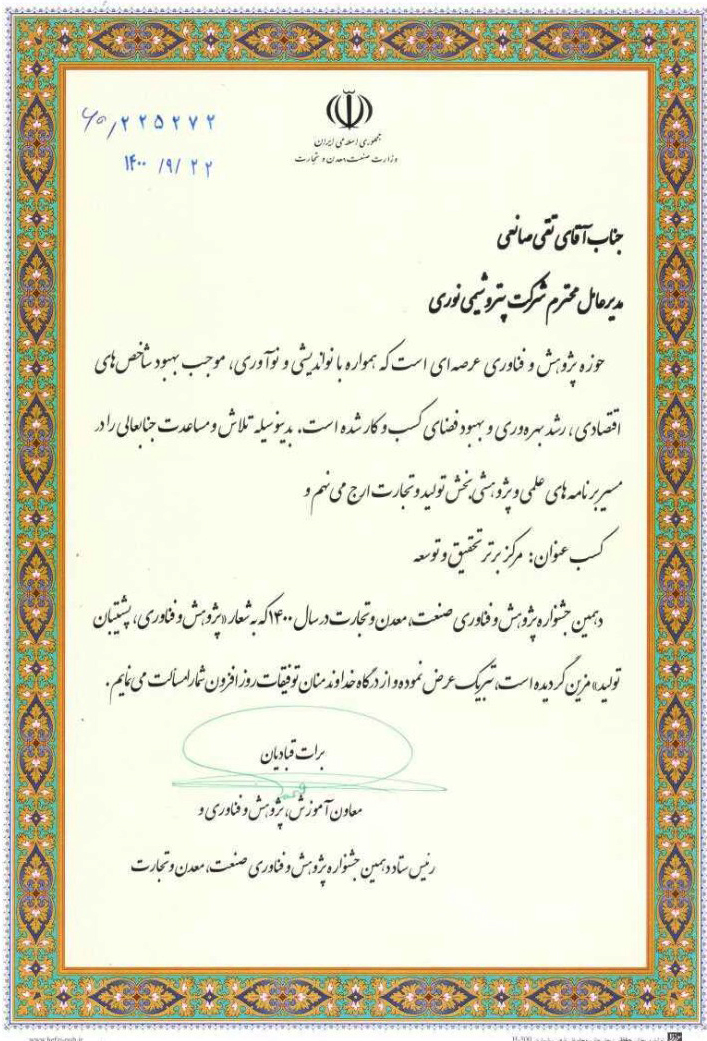 ۶۰/۲۲۵۲۷۲
۱۴۰۰ /۹/ ۲۲
جمهوری اسلامی ایران
وزارت صنعت، معدن و تجارت
جناب آقای تقی صانعی
مدیرعامل محترم شرکت پتروشیمی نوری
حوزه پژوهش و فناوری عرصه‌ای است که همواره با نواندیشی و نوآوری، موجب بهبود شاخص‌های
اقتصادی، رشد بهره‌وری و بهبود فضای کسب و کار شده است. بدینوسیله تلاش و مساعدت جنابعالی را در
مسیر برنامه‌های علمی و پژوهشی بخش تولید و تجارت ارج می‌نهم و
کسب عنوان: مرکز برتر تحقیق و توسعه
دهمین جشنواره پژوهش و فناوری صنعت، معدن و تجارت در سال ۱۴۰۰ که به شعار «پژوهش و فناوری، پشتیبان
تولید» مزین گردیده است، تبریک عرض نموده و از درگاه خداوند منان توفیقات روز افزون شما را مسألت می‌نمایم.
برات قبادیان
معاون آموزش، پژوهش و فناوری و
رئیس ستاد دهمین جشنواره پژوهش و فناوری صنعت، معدن و تجارت
www.hafez-pub.ir
H-300